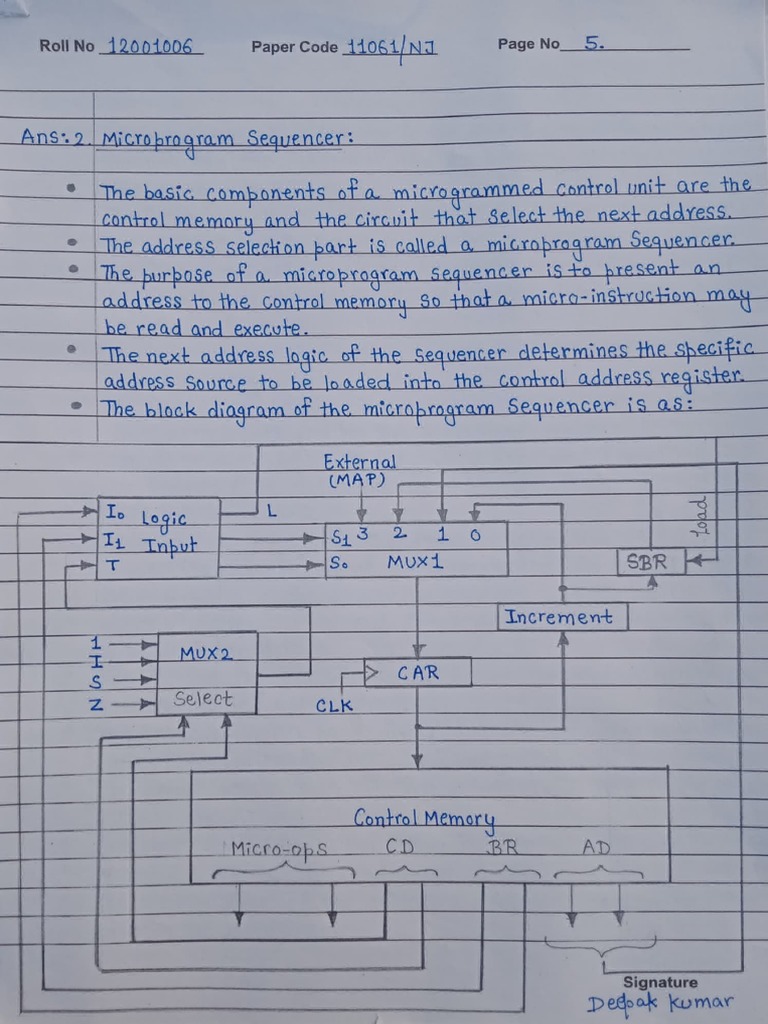 Roll No 12001006 Paper Code 11061/NJ Page No 5.
Ans: 2. Microprogram Sequencer:
• The basic components of a microgrammed control unit are the
control memory and the circuit that select the next address.
• The address selection part is called a microprogram Sequencer.
• The purpose of a microprogram sequencer is to present an
address to the control memory so that a micro-instruction may
be read and execute.
• The next address logic of the sequencer determines the specific
address source to be loaded into the control address register.
• The block diagram of the microprogram Sequencer is as:
External
(MAP)
I0 Logic L
I1 Input
T
S1 3 2 1 0
S0 MUX1
Load
SBR
Increment
1 MUX2
I
S
Z Select
CAR
CLK
Control Memory
Micro-ops CD BR AD
Signature
Deepak Kumar